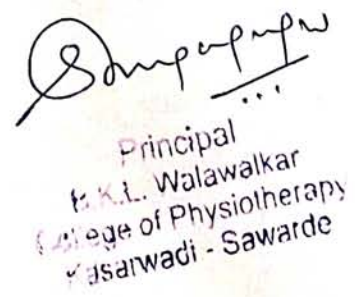 Principal
B.K.L. Walawalkar
College of Physiotherapy
Kasarwadi - Sawarde